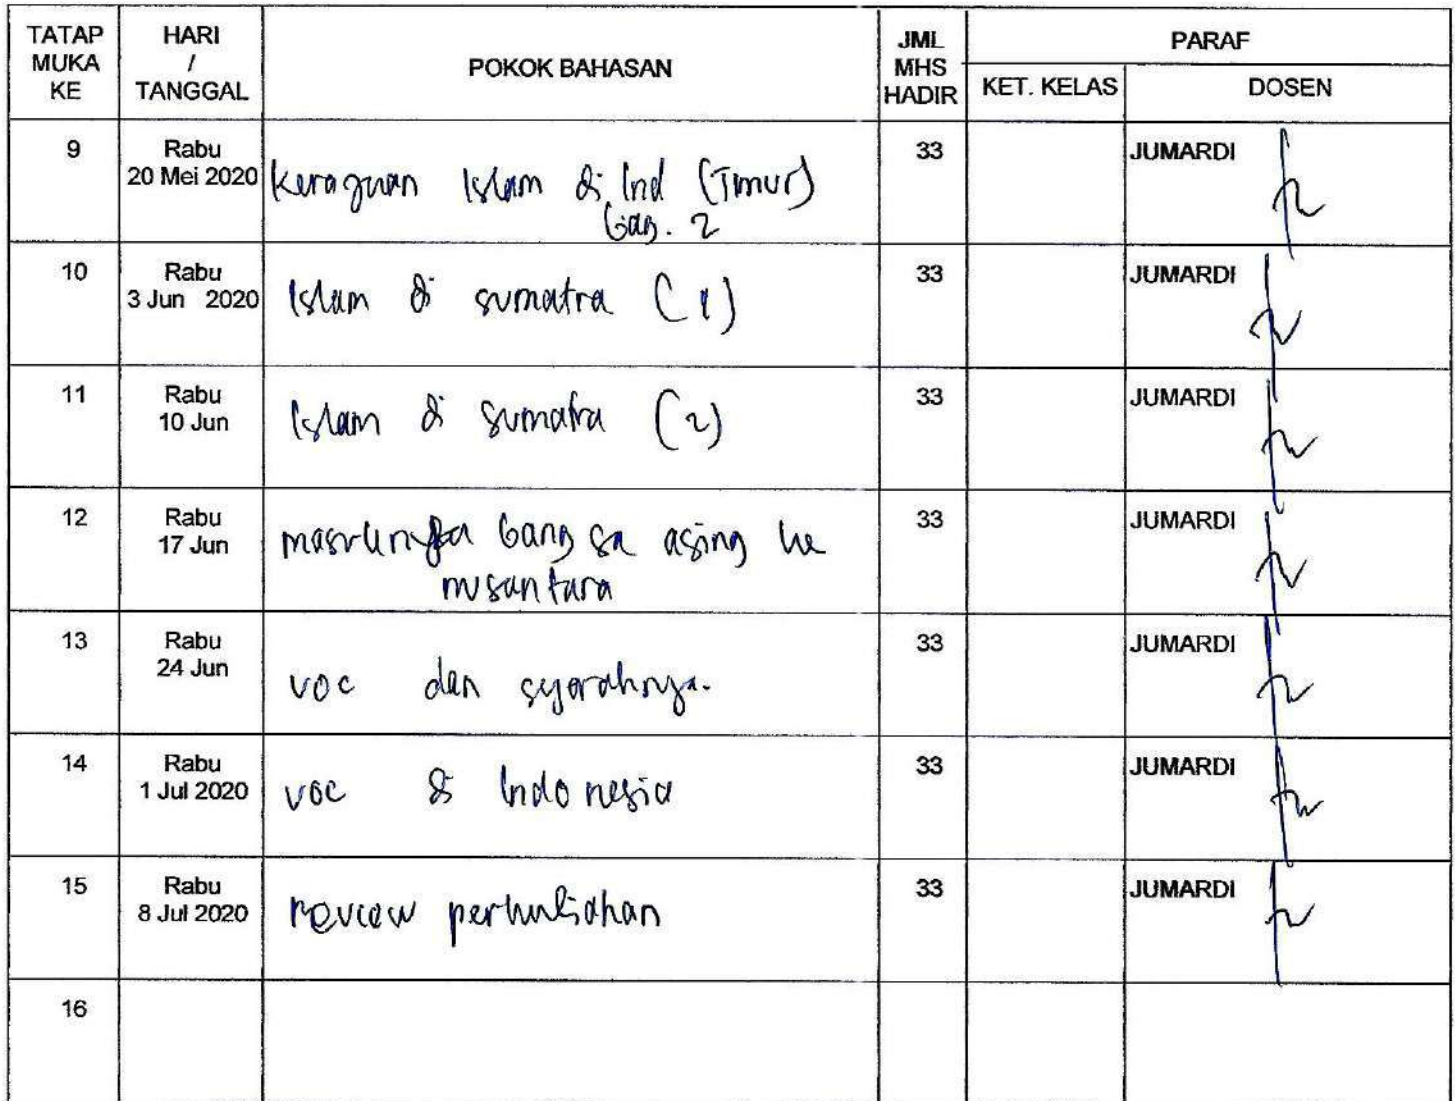 TATAP MUKA KE
HARI / TANGGAL
POKOK BAHASAN
JML MHS HADIR
PARAF
KET. KELAS
DOSEN
9
Rabu
20 Mei 2020
Kerajaan Islam di Ind (Timur)
bag. 2
33
JUMARDI
10
Rabu
3 Jun 2020
Islam di sumatra (1)
33
JUMARDI
11
Rabu
10 Jun
Islam di sumatra (2)
33
JUMARDI
12
Rabu
17 Jun
masuknya bangsa asing ke
nusantara
33
JUMARDI
13
Rabu
24 Jun
voc dan sejarahnya.
33
JUMARDI
14
Rabu
1 Jul 2020
voc di Indonesia
33
JUMARDI
15
Rabu
8 Jul 2020
review perkuliahan
33
JUMARDI
16